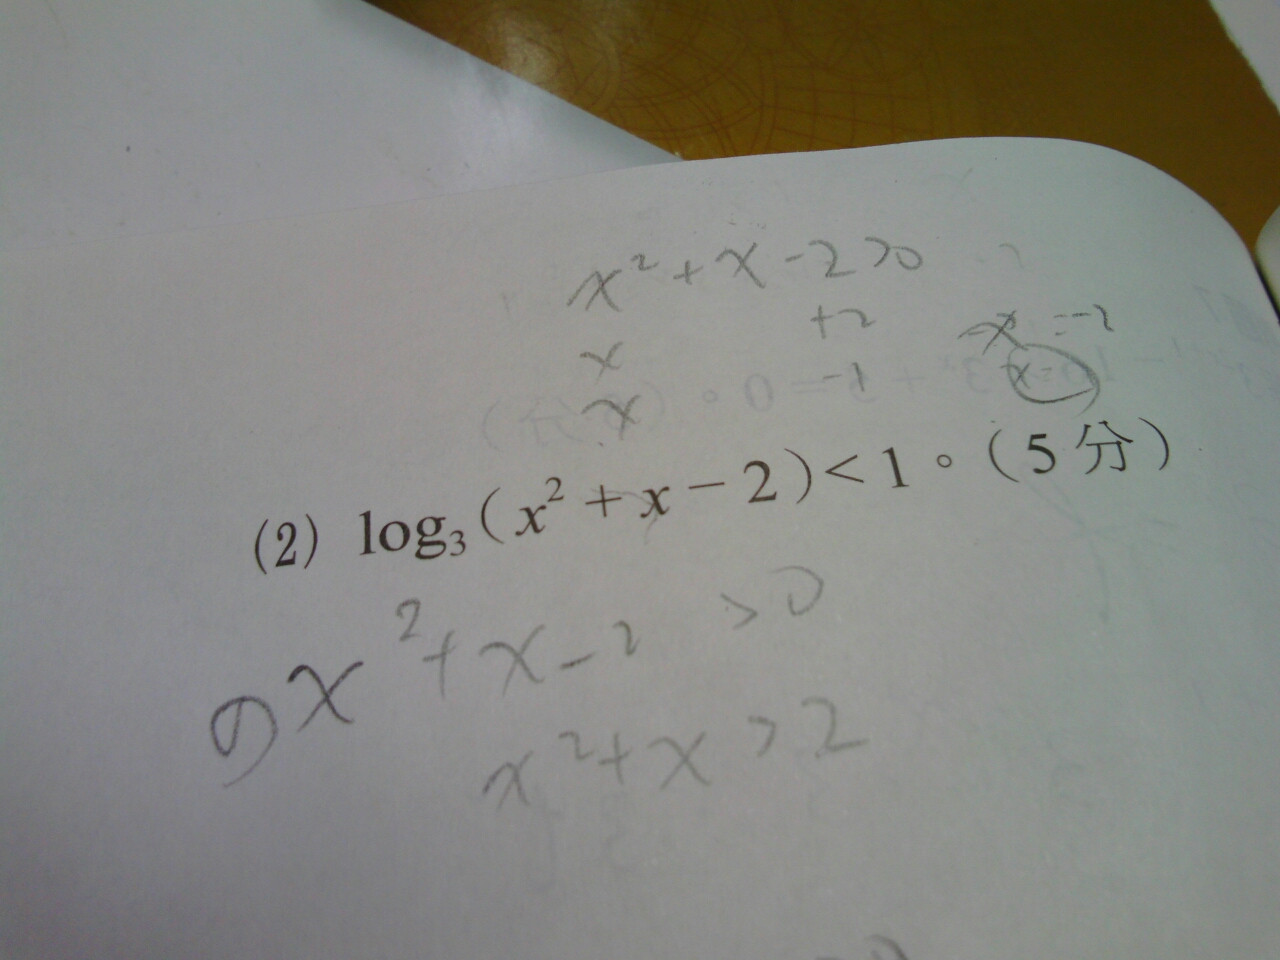 x² + x - 2 > 0
x +2
x -1
x = -2
(2) log₃(x² + x - 2) < 1。(5分)
x² + x - 2 > 0
x² + x > 2